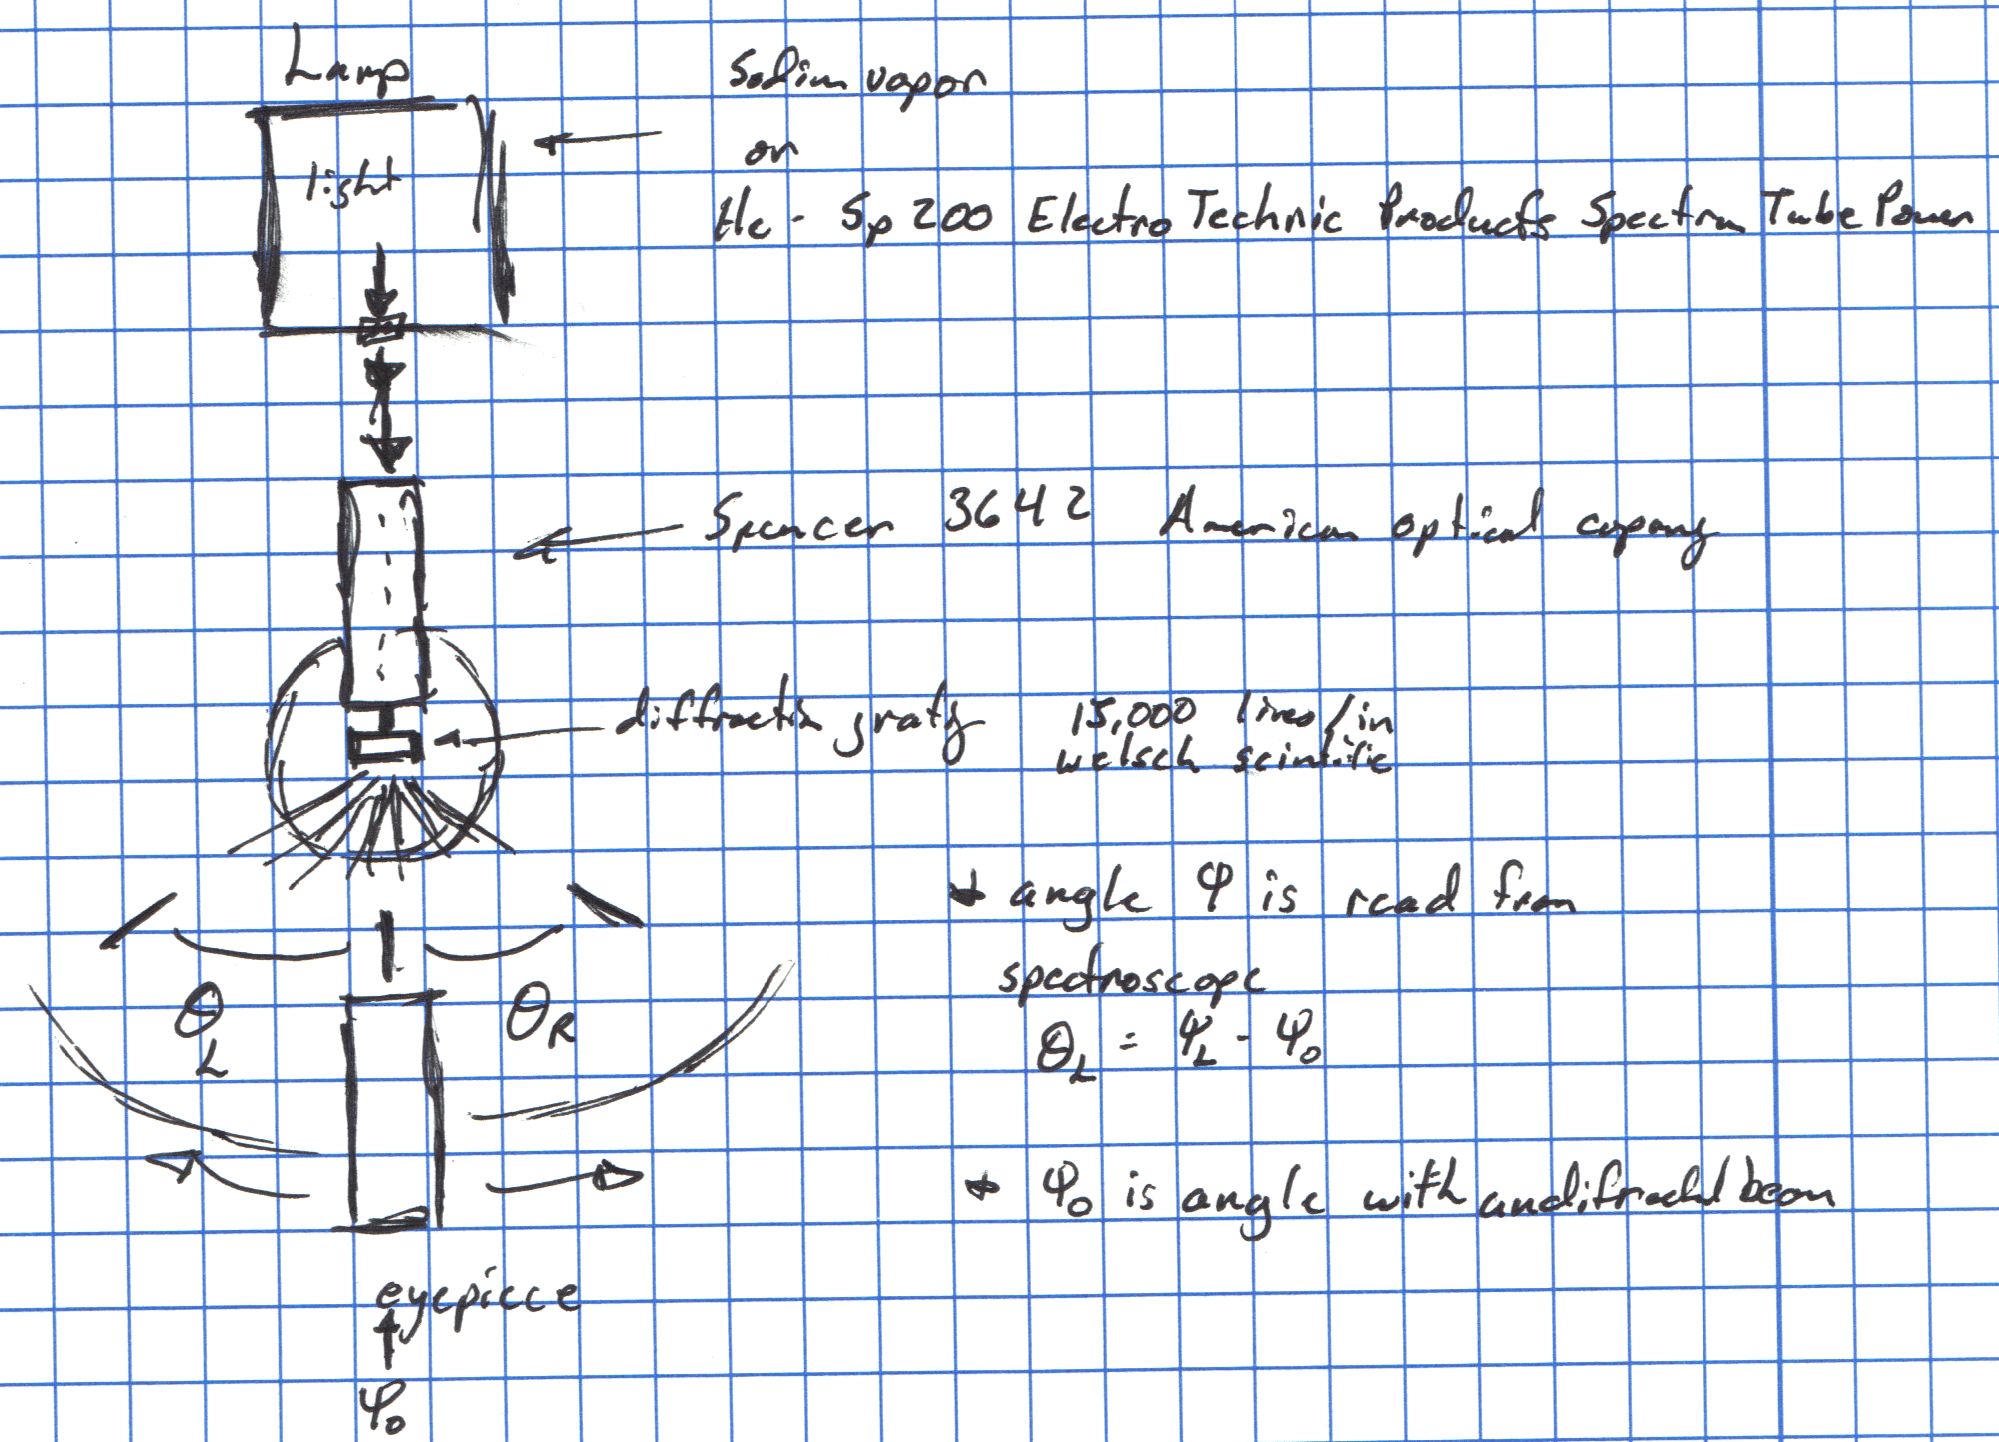 Lamp
light
Sodium vapor
or
He - Sp 200 Electro Technic Products Spectrum Tube Power
Spencer 3642 American optical copany
diffraction grating 15,000 lines/in
welsch scintific
* angle φ is read from
spectroscope
θL = φL - φ0
θL
θR
* φ0 is angle with undifracted beam
eyepiece
φ0